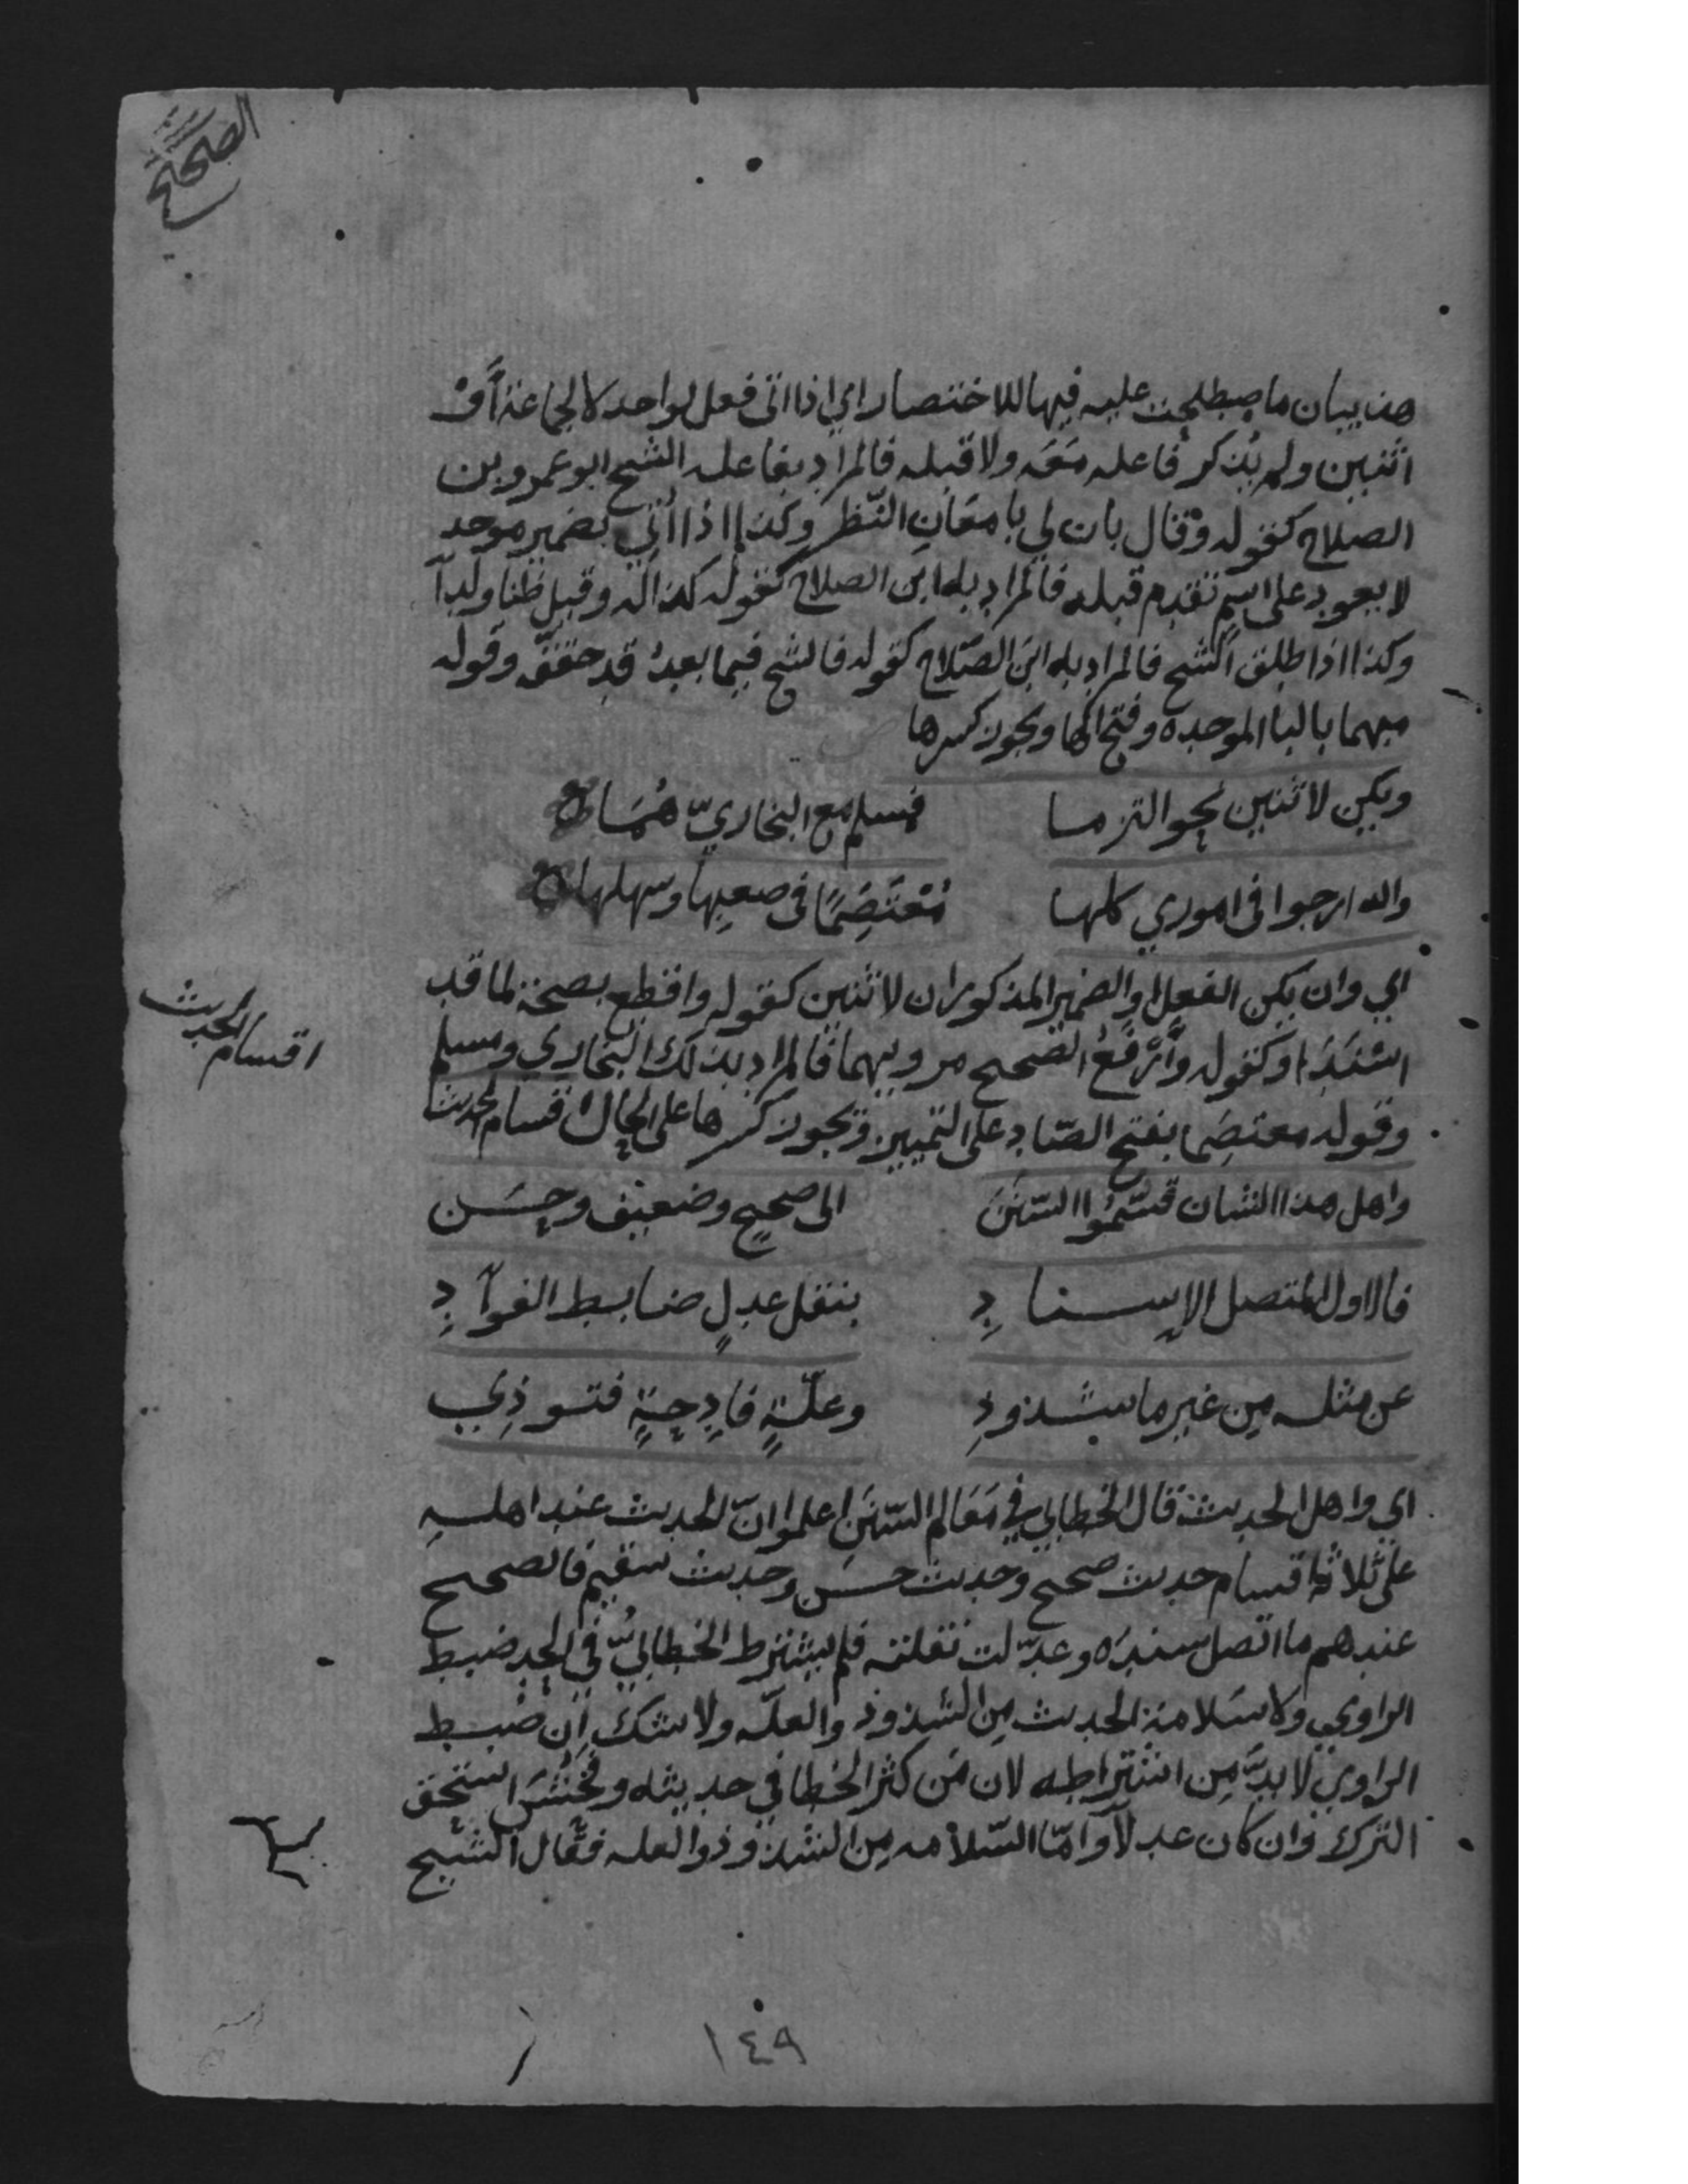 الصحيح
هذا بيان ما اصطلحت عليه فيها للاختصار اي اذا اتى فعل لواحد لا لجماعة أوْ
اثنين ولم يُذكر فاعله مَعَه ولا قبله فالمراد بفاعله الشيخ ابو عمرو بن
الصلاح كقوله وقال بان لي بامعَانِ النّظر وكذا اذا اُتي بضمير موحد
لا يعود على اسم تقدم قبله فالمراد به ابن الصلاح كقوله كذا له وقيل ظنا ولدا
وكذا اذا اطلق الشيخ فالمراد به ابن الصّلاح كقوله فالشيخ فيما بعدُ قد حققه وقوله
مبهما بالبا الموحده وفتح الها ويجوز كسرها
ويكن لاثنين نحو التزما فمسلم مع البخاريّ هُمَا
والله ارجوا في اموري كلها مُعْتَصَمًا في صعبِها وسهلها
اي وان يكن الفعل او الضمير المذكوران لاثنين كقوله واقطع بصحة لما قد
اسْنَدَا وكقوله وَأَرْفَعُ الصحيح مرويهما فالمراد بذلك البخاري ومسلم
اقسام الحديث
وقوله معتصَما بفتح الصّاد على التمييز ويجوز كسرها على الحال اقسام الحديث
واهل هذا الشان قسّمُوا السّنَنَ الى صحيحٍ وضعيف وحسَن
فالاول المتصل الإسنادِ بنقل عدلٍ ضابط الفوآدِ
عن مثله مِن غير ما شذوذِ وعلّةٍ قادِحةٍ فتوذِي
اي واهل الحديث قال الخطابي في مَعَالم السّنَنِ اعلموا انّ الحديث عند اهلهِ
على ثلاثة اقسام حديث صحيح وحديث حسَن وحديث سقيم فالصحيح
عندهم ما اتصل سندَه وعدّلت نقلته فلم يشترط الخطابيُّ في الحد ضبط
الراوي ولا سَلامة الحديث مِن الشذوذ والعلّه ولا شك اَن ضبط
الراوي لا بدَّ مِن اشتراطِه لان مَن كثر الخطا في حديثه وفَحُشَ استحق
الترك وان كان عدلاً وامّا السّلامه مِن الشذوذ والعله فقال الشيخ
١٤٩